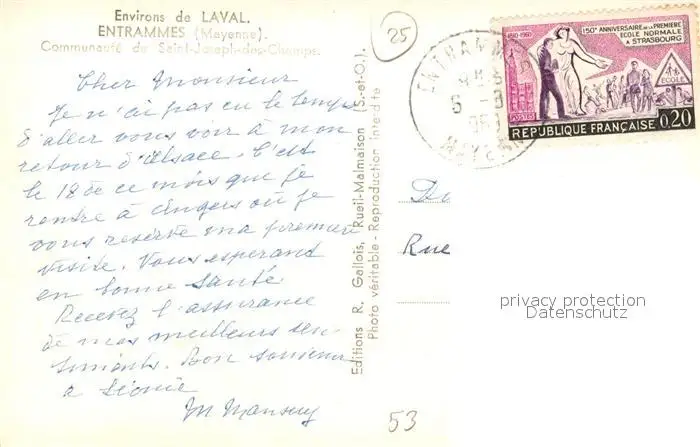 Environs de LAVAL.
ENTRAMMES (Mayenne).
Communauté de Saint-Joseph-des-Champs.
25
Cher Monsieur
Je n'ai pas eu le temps
d'aller vous voir à mon
retour d'Alsace. C'est
le 18 de ce mois que je
rentre à Angers où je
vous réserve ma première
visite. Vous espérant
en bonne santé.
Recevez l'assurance
de mes meilleurs sen-
timents. Bon souvenir
a Léonie
M Mansuy
53
Editions R. Gallois, Rueil-Malmaison (S.-et-O.).
Photo véritable - Reproduction interdite
ENTRAMMES
MAYENNE
1810-1960
150e ANNIVERSAIRE DE LA PREMIÈRE
ECOLE NORMALE
A STRASBOURG
ECOLE
POSTES
0,20
REPUBLIQUE FRANÇAISE
Rue
privacy protection
Datenschutz